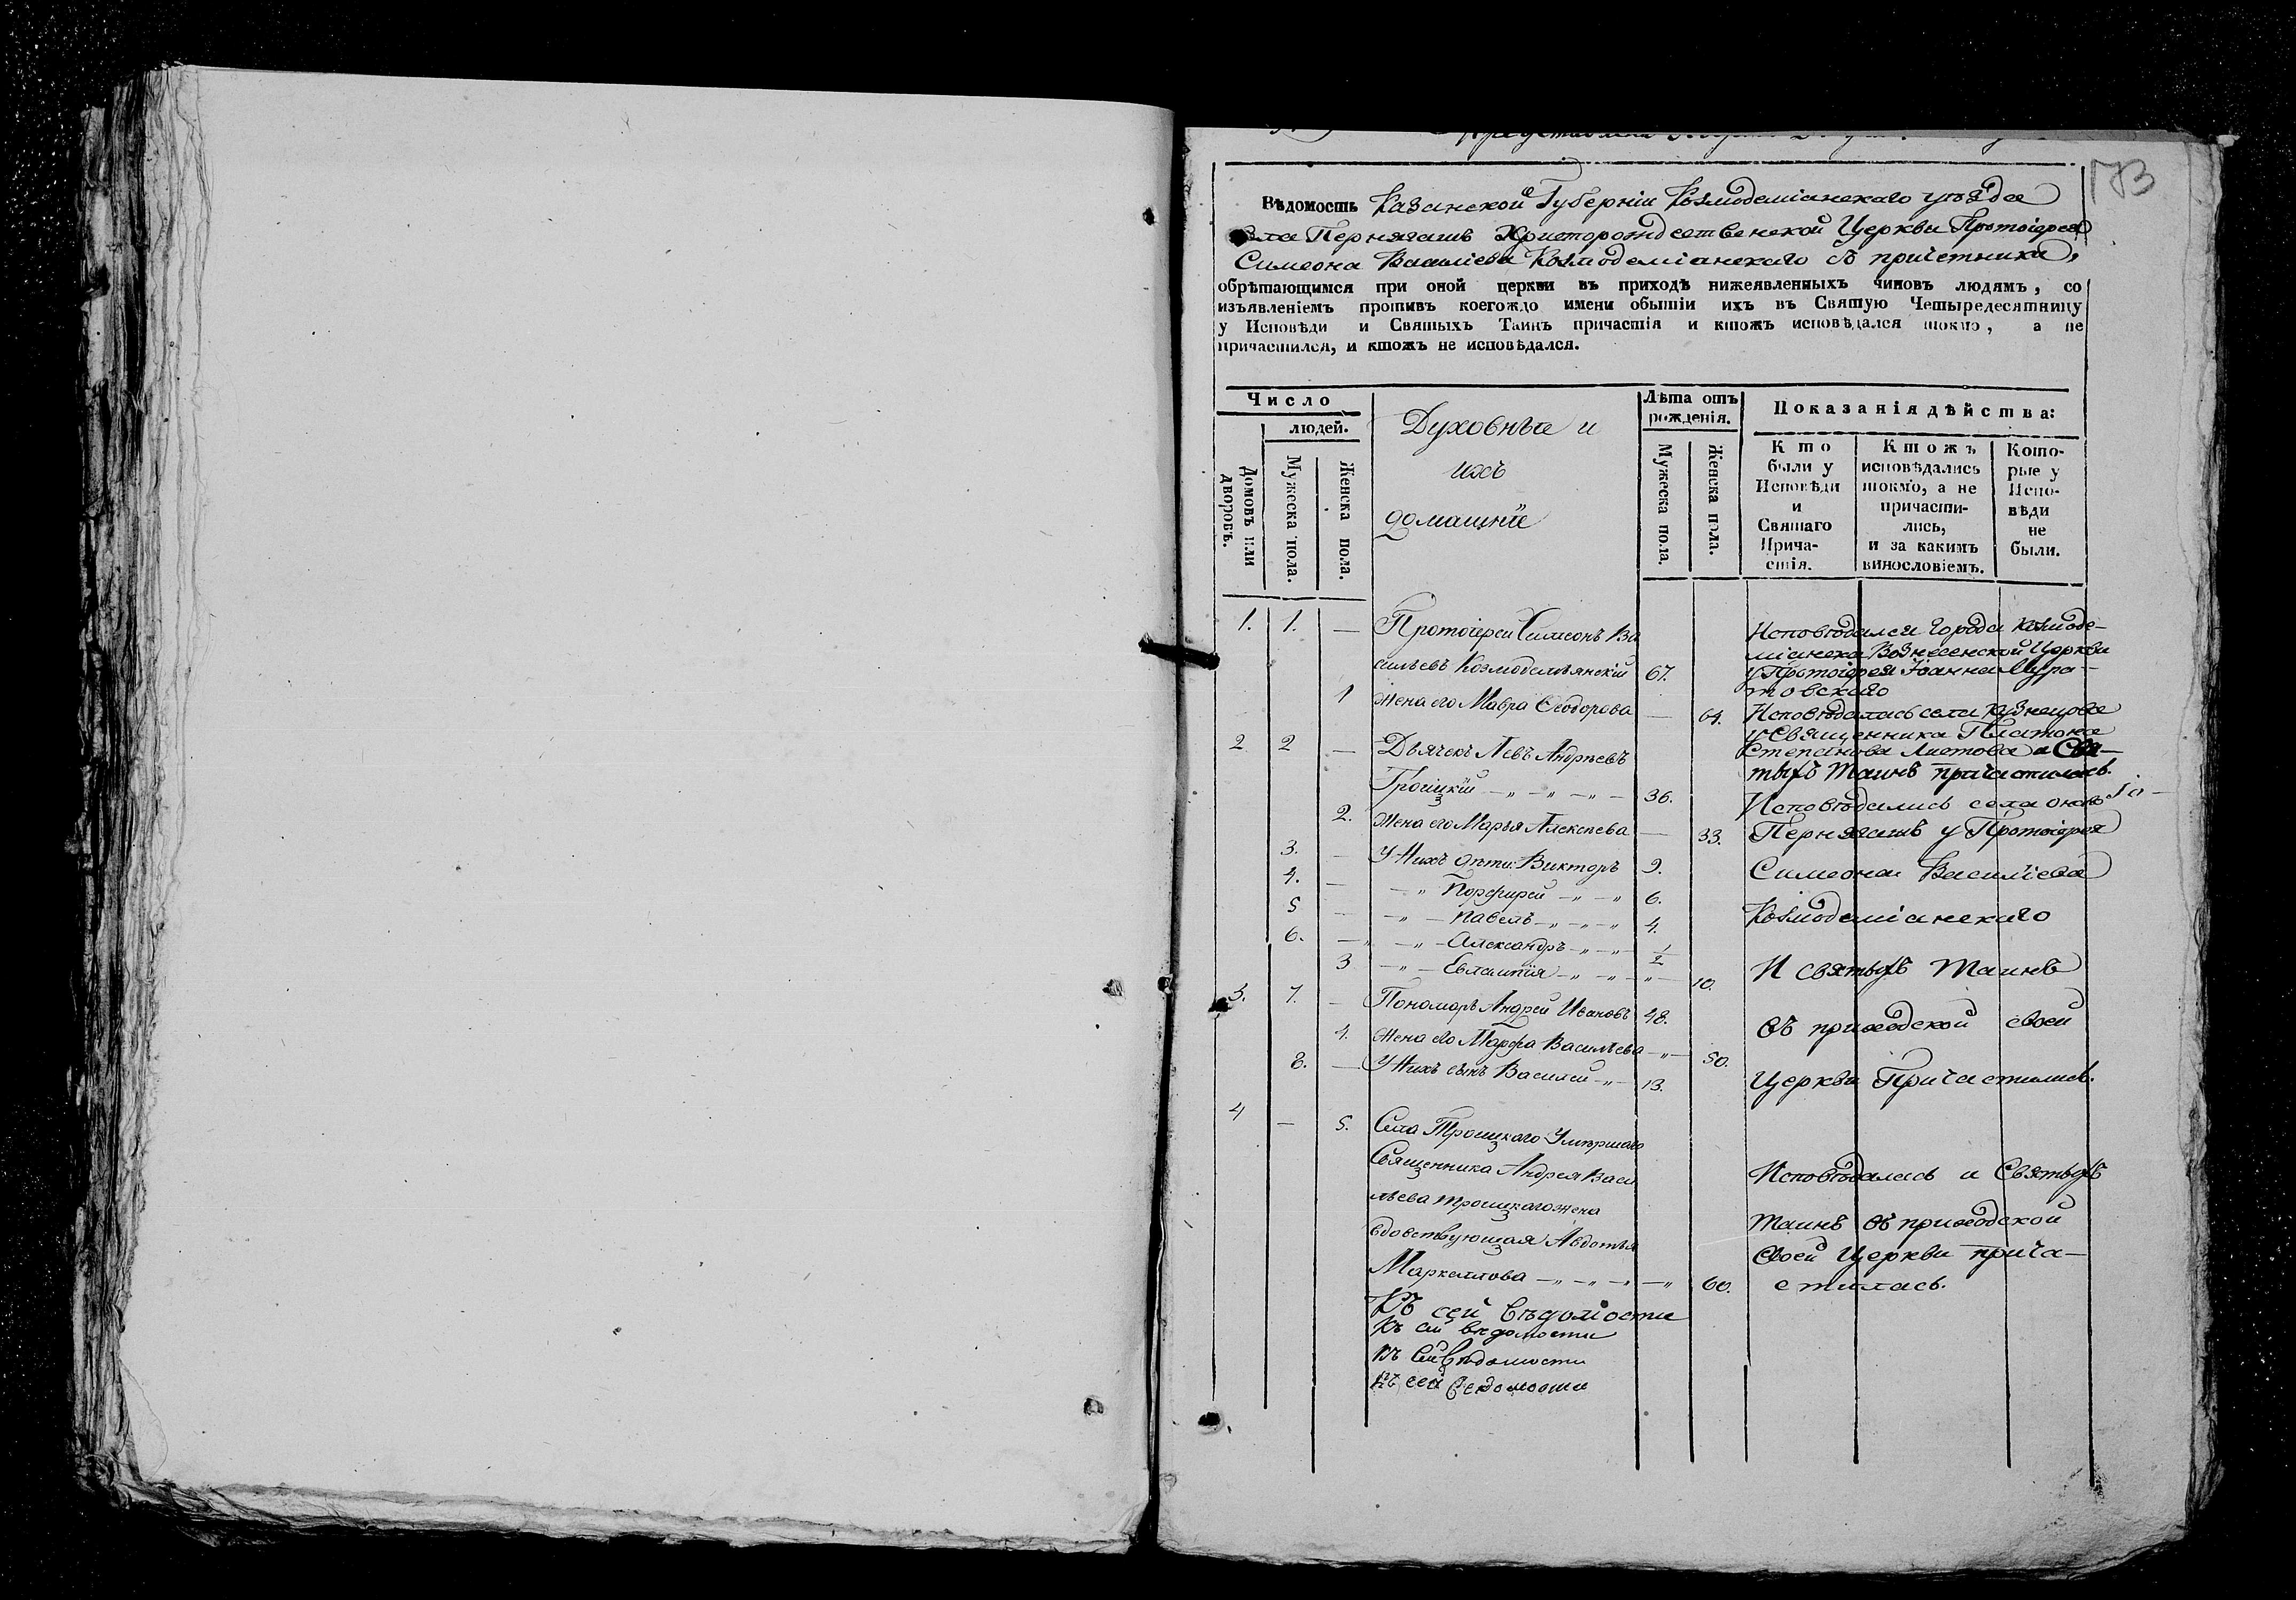 173
Вѣдомость Казанской Губерніи Козмодеміанскаго уѣзда
села Пернягашъ Христорождественской Церкви Протоіерея
Симеона Василіева Козмодеміанскаго съ причетники,
обрѣтающимся при оной церкви въ приходѣ нижеявленныхъ чиновъ людямъ, со
изъявленіемъ противъ коегождо имени обытіи ихъ въ Святую Четыредесятницу
у Исповѣди и Святыхъ Таинъ причастія и ктожъ исповѣдался токмо, а не
причастился, и ктожъ не исповѣдался.
Число
людей.
Домовъ или дворовъ.
Мужеска пола.
Женска пола.
Духовныe и
ихъ
домашнїе
Лѣта отъ
рожденія.
Мужеска пола.
Женска пола.
Показанія дѣйства:
Кто
были у
Исповѣди
и
Святаго
Прича-
стія.
Ктожъ
исповѣдались
токмо, а не
причасти-
лись,
и за какимъ
винословіемъ.
Кото-
рые у
Испо-
вѣди
не
были.
1. 1. — Протоіерей Симеонъ Ва
сильевъ Козмодемьянскій 67.
Исповѣдался города Козмоде-
міанска Вознесенской Церкви
у Протоіерея Іоанна Мура-
товскаго
1 Жена его Мавра Ѳеодорова — 64.
Исповѣдалась села Кузнецова
у Священника Платона
Степанова Листова и Свя-
тыхъ Таинъ причастилась.
2 2 — Дьячекъ Левъ Андреевъ
Троицкїй — „ — „ — „ — 36.
2. Жена его Марья Алексѣева — 33.
3. — У Нихъ дѣти: Викторъ 9.
4. — — „ Порфирей — „ — „ 6.
5 — — „ — Павелъ — „ — „ — „ 4.
6. — „ — „ — Александръ — „ — „ 1/2
3 — „ — Евлампїя — „ — „ — „ — 10.
3. 7. — Пономарь Андрей Ивановъ 48.
4. Жена его Марфа Васильева — „ — 50.
8. — У Нихъ сынъ Василей — „ — 13.
Исповѣдались села онаго
Пернягашъ у Протоіерея
Симеона Василіева
Козмодеміанскаго
И Святыхъ Таинъ
въ приходской своей
Церкви Причастились.
4 — 5. Села Троицкаго Умершаго
Священника Андрея Васи
льева Троицкаго жена
вдовствующая Авдотья
Маркеллова — „ — „ — „ — „ 60.
Исповѣдалась и Святыхъ
Таинъ въ приходской
своей Церкви прича-
стилась.
Къ сей вѣдомости
Къ сей вѣдомости
Къ Сей Вѣдомости
Къ сей Вѣдомости